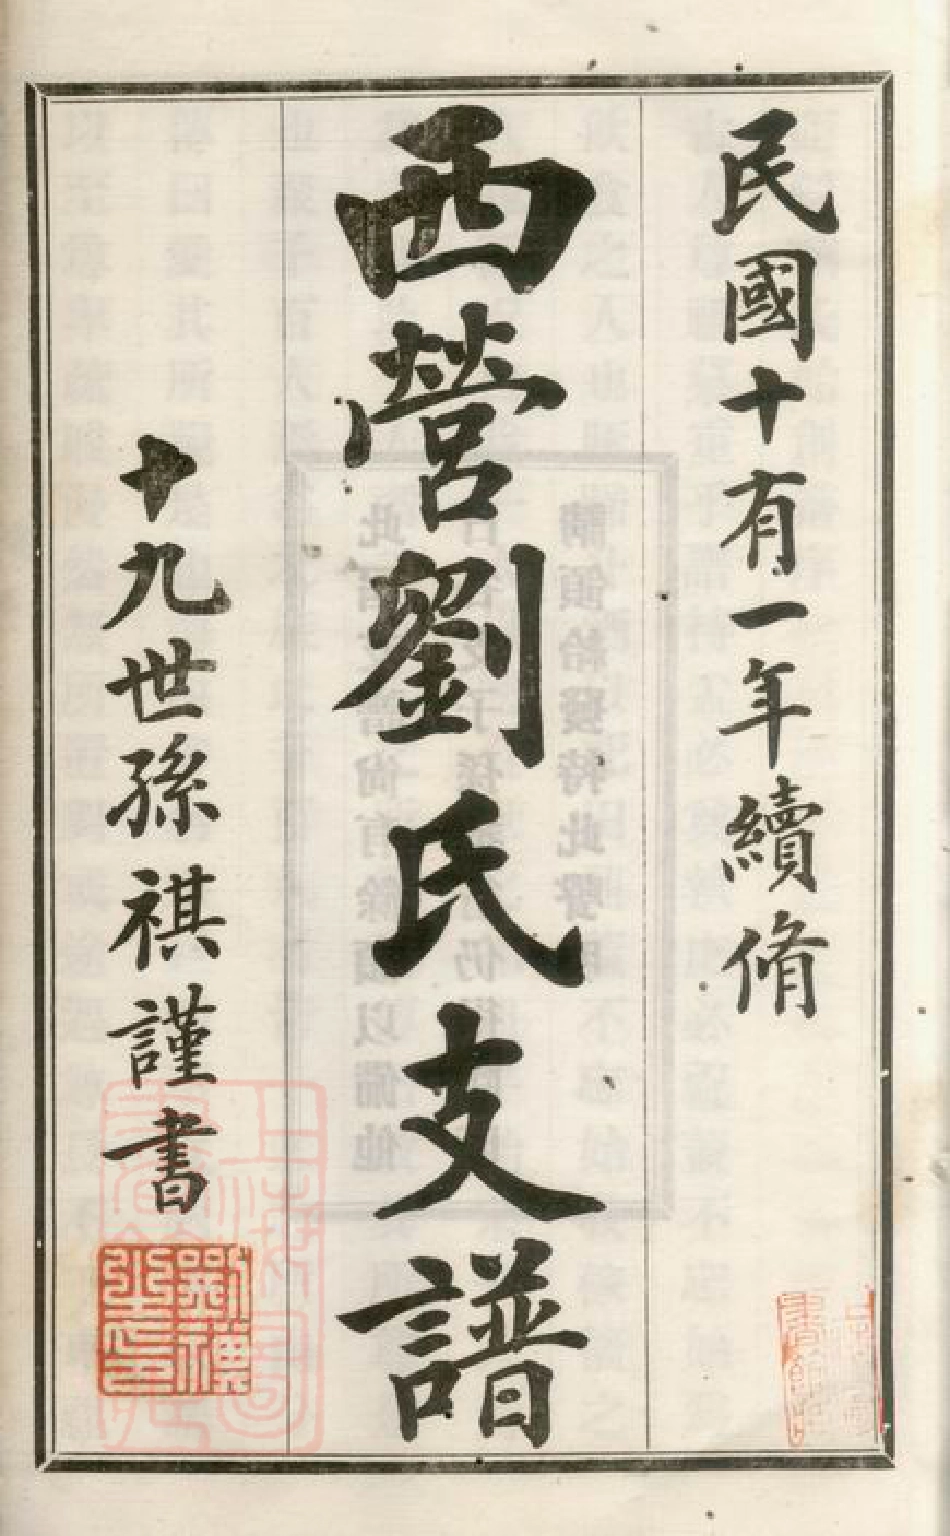 民國十有一年續脩
西營劉氏支譜
十九世孫祺謹書